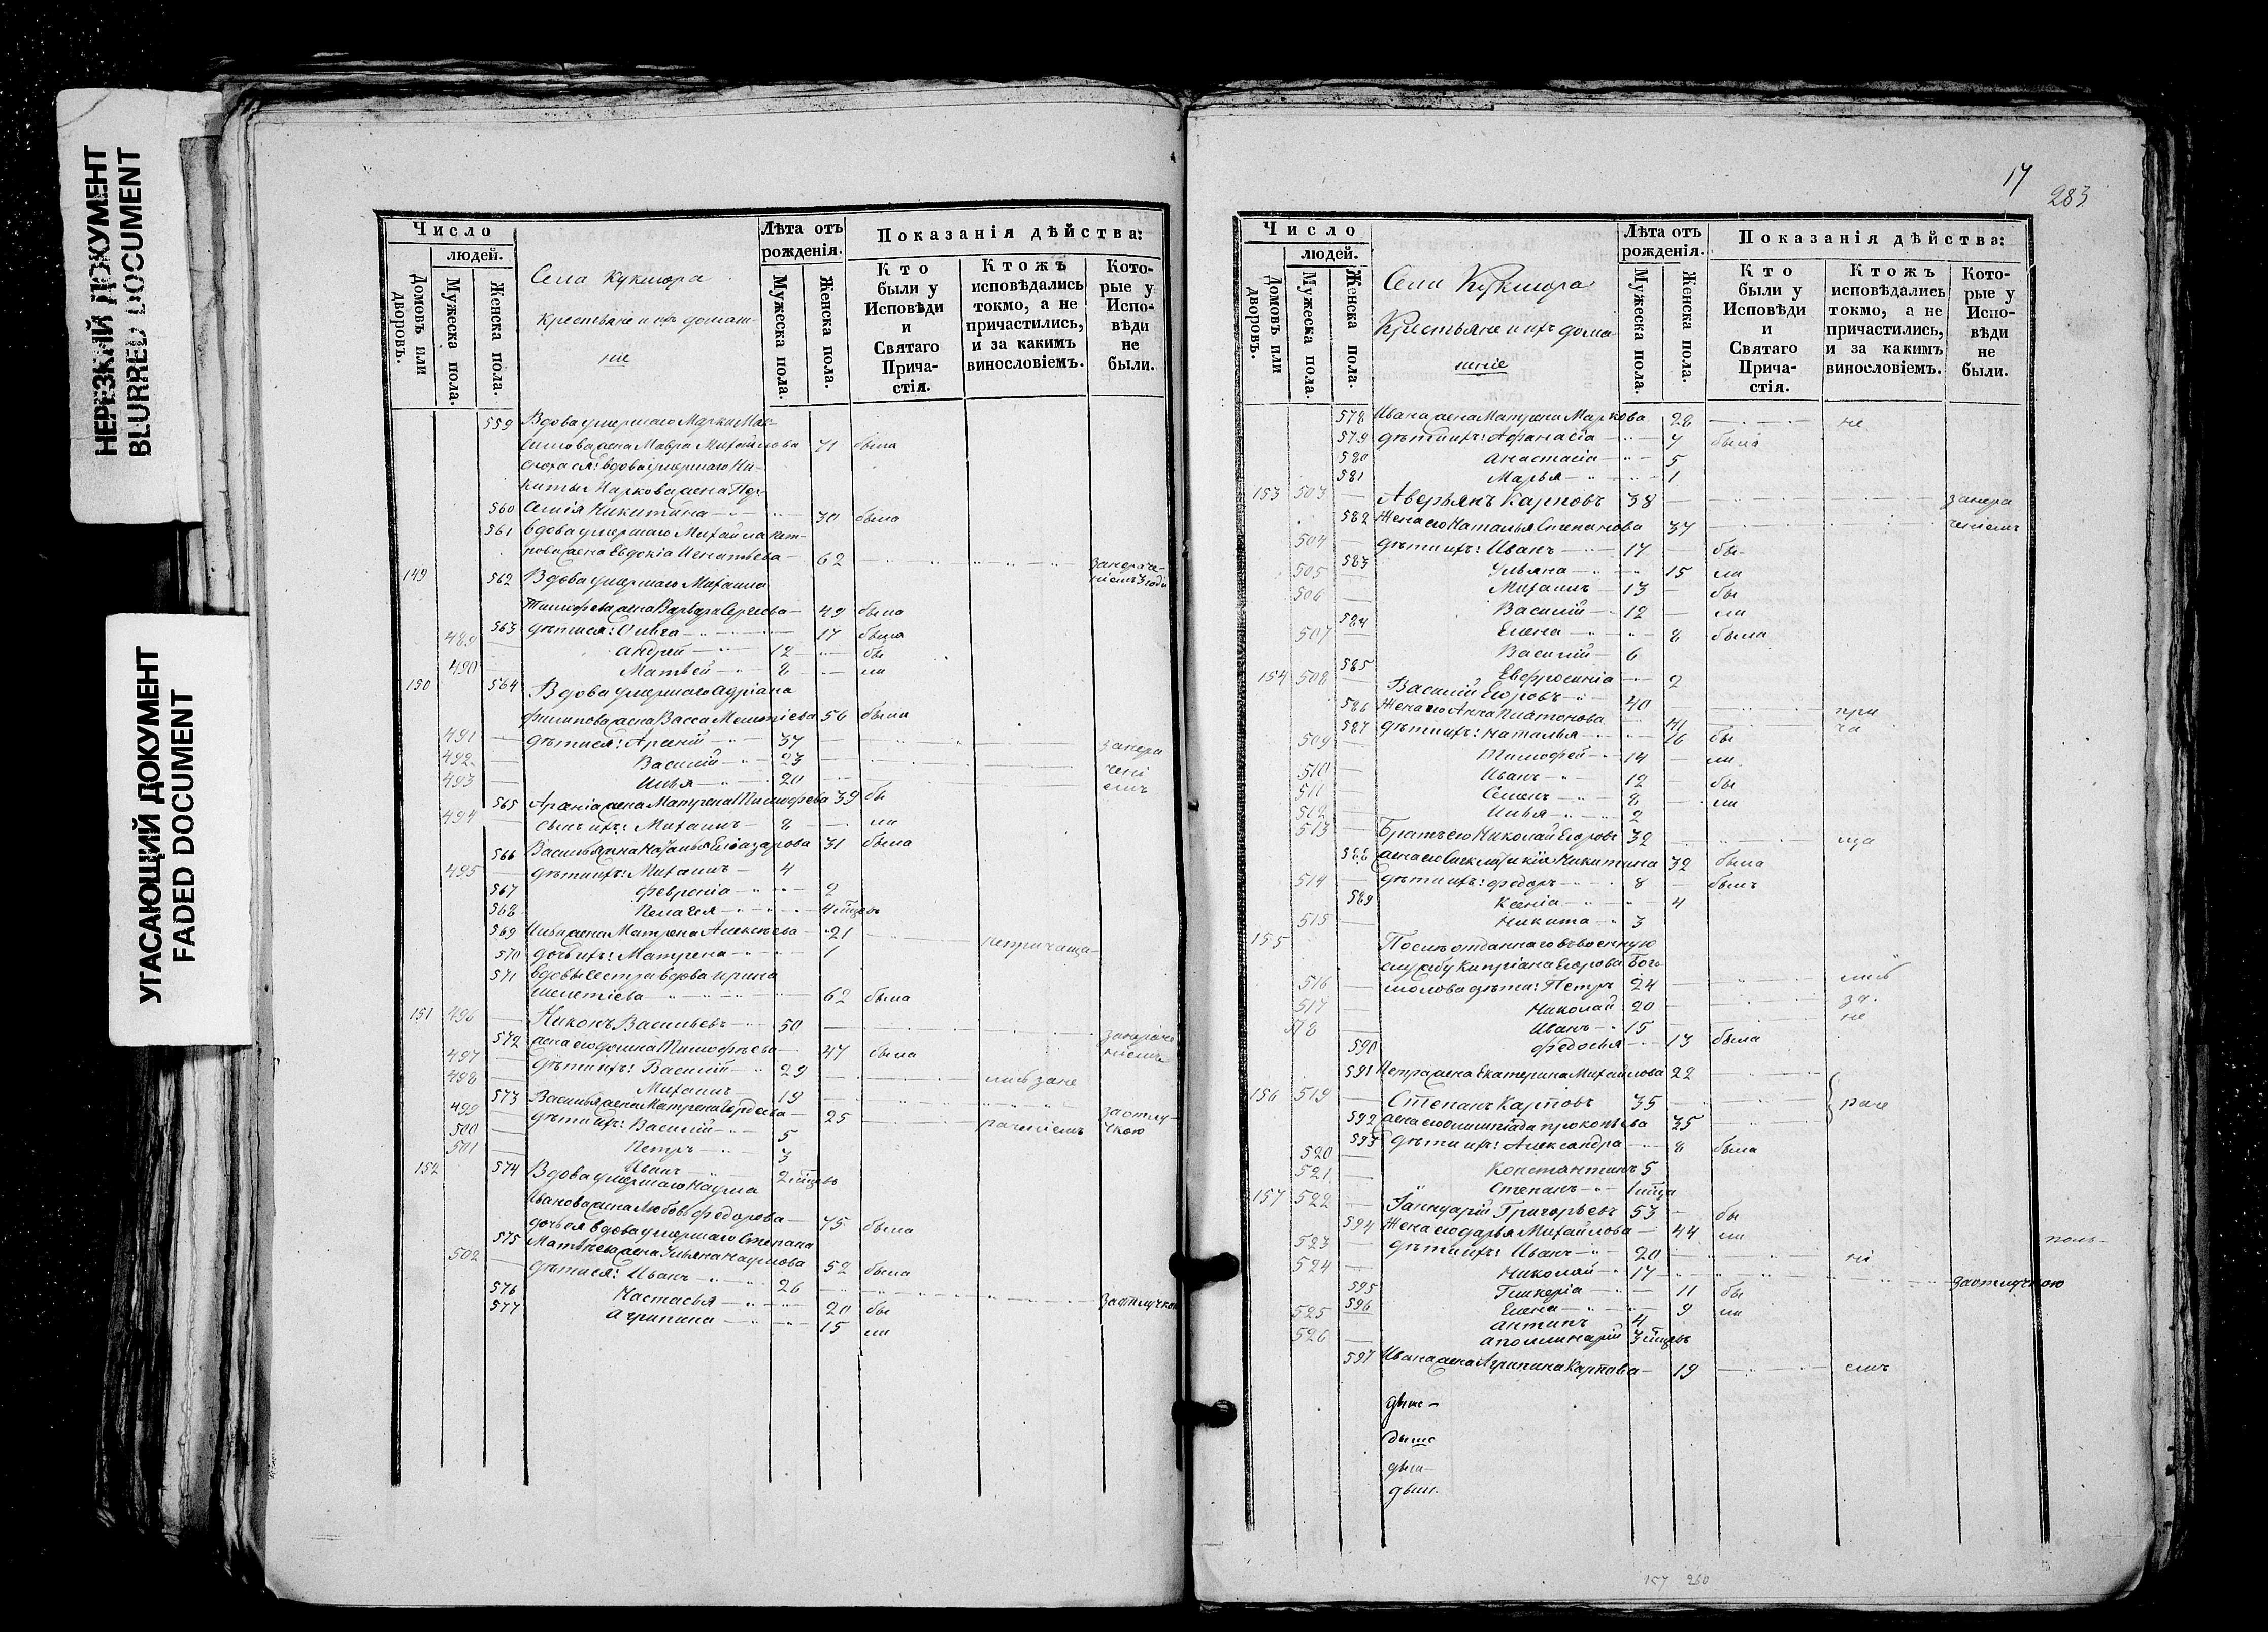 НЕРЕЗКИЙ ДОКУМЕНТ
BLURRED DOCUMENT
УГАСАЮЩИЙ ДОКУМЕНТ
FADED DOCUMENT
Число
людей.
Домовъ или дворовъ.
Мужеска пола.
Женска пола.
Села Кукмора
Крестьяне и ихъ домаш-
ніе
Лѣта отъ рожденія.
Мужеска пола.
Женска пола.
Показанія дѣйства:
Кто были у Исповѣди и Святаго Причастія.
Ктожъ исповѣдались токмо, а не причастились, и за какимъ винословіемъ.
Которые у Исповѣди не были.
559 Вдова умершаго Марка Мак-
симова жена Мавра Михайлова 71 была
сноха ея: вдова умершаго Ни-
киты Маркова жена Пер-
560 Никитина 30 была
561 вдова умершаго Михайла
жена Евдокія Игнатьева 62
149 562 Вдова умершаго Михаила
Тимофеева жена Варвара Сергеева 49 была
563 дѣти ея: Ольга 17 была
489 Андрей 12 бы
490 Матвей 8 ли
150 564 Вдова умершаго Адріана
Филипова жена Васса Мелетіева 56 была
491 дѣти ея: Арсеній 37
492 Василій 23
493 Илья 20
565 Арсенія жена Матрена Тимофеева 39 бы
494 сынъ ихъ: Михаилъ 8 ли
566 Василья жена Наталья Елеазарова 31 была
495 дѣти ихъ: Михаилъ 4
567 Февронія 2
568 Пелагея 4 мцевъ
569 Ильи жена Матрена Алексѣева 21 непричаща-
570 дочь ихъ: Матрена 1
571 вдовы сестра вдова Ирина
Мелетіева 62 была
151 496 Никонъ Васильевъ 50
572 жена его Домна Тимофѣева 47 была
497 дѣти ихъ: Василій 29
498 Михаилъ 19
573 Василья жена Матрена 25 раченіемъ
499 дѣти ихъ: Василій 5
500 Петръ 3
501 Иванъ 2 мцевъ
152 574 Вдова умершаго Наума
Иванова жена Любовь Федорова 75 была
дочь ея вдова умершаго Степана
575 Матвѣева жена Ульяна Наумова 52 была
502 дѣти ея: Иванъ 26 заотлучкою
576 Настасья 20 бы
577 Агрипина 15 ли
17
283
Число
людей.
Домовъ или дворовъ.
Мужеска пола.
Женска пола.
Села Кукмора
Крестьяне и ихъ дома-
шніе
Лѣта отъ рожденія.
Мужеска пола.
Женска пола.
Показанія дѣйства:
Кто были у Исповѣди и Святаго Причастія.
Ктожъ исповѣдались токмо, а не причастились, и за какимъ винословіемъ.
Которые у Исповѣди не были.
578 Ивана жена Матрена Маркова 28 не
579 дѣти ихъ: Афанасія 7 была
580 Анастасія 5
581 Марья 1
153 503 Аверьянъ Карповъ 38 занера
582 Жена его Наталья Степанова 37 ченіемъ
504 дѣти ихъ: Иванъ 17 бы
583 Ульяна 15 ли
505 Михаилъ 13 бы
506 Василій 12 ли
584 Елена 8 была
507 Василій 6
585 Евфросинія 2
154 508 Василій Егоровъ 40 при
586 Жена его Анна Платонова 41 ча
587 дѣти ихъ: Наталья 16 бы
509 Тимофей 14 ли
510 Иванъ 12 бы
511 Семенъ 8 ли
512 Илья 2
513 Братъ его Николай Егоровъ 32 ща
588 жена его Никитина 32 была
514 дѣти ихъ: Федоръ 8 былъ
589 Ксенія 4
515 Никита 3
155 Послѣ отданнаго въ военную
службу Кипріана Егорова Бого-
516 молова дѣти: Петръ 24 лись
517 Николай 20 за
518 Иванъ 15 не
590 Федосья 13 была
591 Петра жена Екатерина Михайлова 22
156 519 Степанъ Карповъ 35 раче
592 жена его Олимпіада Прокопьева 35
593 дѣти ихъ: Александра 8 была
520 Константинъ 5
521 Степанъ 1 мца
157 522 Іаннуарій Григорьевъ 53 бы
594 Жена его Дарья Михайлова 44 ли
523 дѣти ихъ: Иванъ 20 ні
524 Николай 17 заотлучкою
595 Гликерія 11 бы
596 Елена 9 ли
525 Антипъ 4
526 Аполлинарій 3 мцевъ
597 Ивана жена Агрипина Карпова 19 емъ
157 260